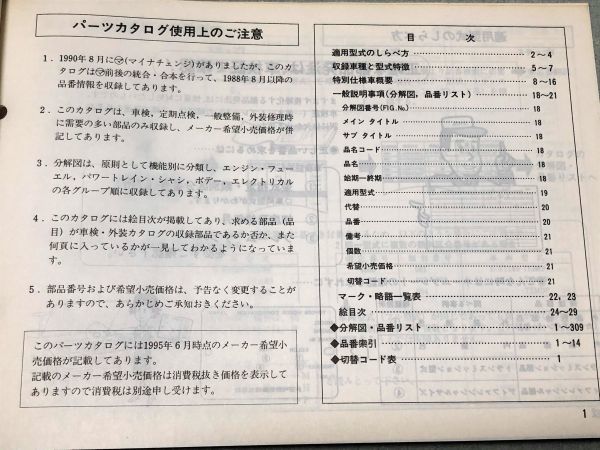 パーツカタログ使用上のご注意
1．1990年8月に㋮(マイナチェンジ)がありましたが、このカ
タログは㋮前後の統合・合本を行って、1988年8月以降の
品番情報を収録してあります。
2．このカタログは、車検、定期点検、一般整備、外装修理時
に需要の多い部品のみ収録し、メーカー希望小売価格が併
記してあります。
3．分解図は、原則として機能別に分類し、エンジン・フュー
エル，パワートレイン・シャシ，ボデー，エレクトリカル
の各グループ順に収録してあります。
4．このカタログには絵目次が掲載してあり、求める部品（品
目）が車検・外装カタログの収録部品であるか否か、また
何頁に入っているかが一見してわかるようになっていま
す。
5．部品番号および希望小売価格は、予告なく変更することが
ありますので、あらかじめご承知おきください。
このパーツカタログには1995年6月時点のメーカー希望小
売価格が記載してあります。
記載のメーカー希望小売価格は消費税抜き価格を表示して
ありますので消費税は別途申し受けます。
目 次
適用型式のしらべ方 2～4
収録車種と型式特徴 5～7
特別仕様車概要 8～16
一般説明事項(分解図，品番リスト) 18～21
分解図番号(FIG.No.) 18
メイン タイトル 18
サブ タイトル 18
品名コード 18
品名 18
始期―終期 18
適用型式 19
代替 20
品番 20
備考 21
個数 21
希望小売価格 21
切替コード 21
マーク・略語一覧表 22，23
絵目次 24～29
◆分解図・品番リスト 1～309
◆品番索引 1～14
◆切替コード表 1
1